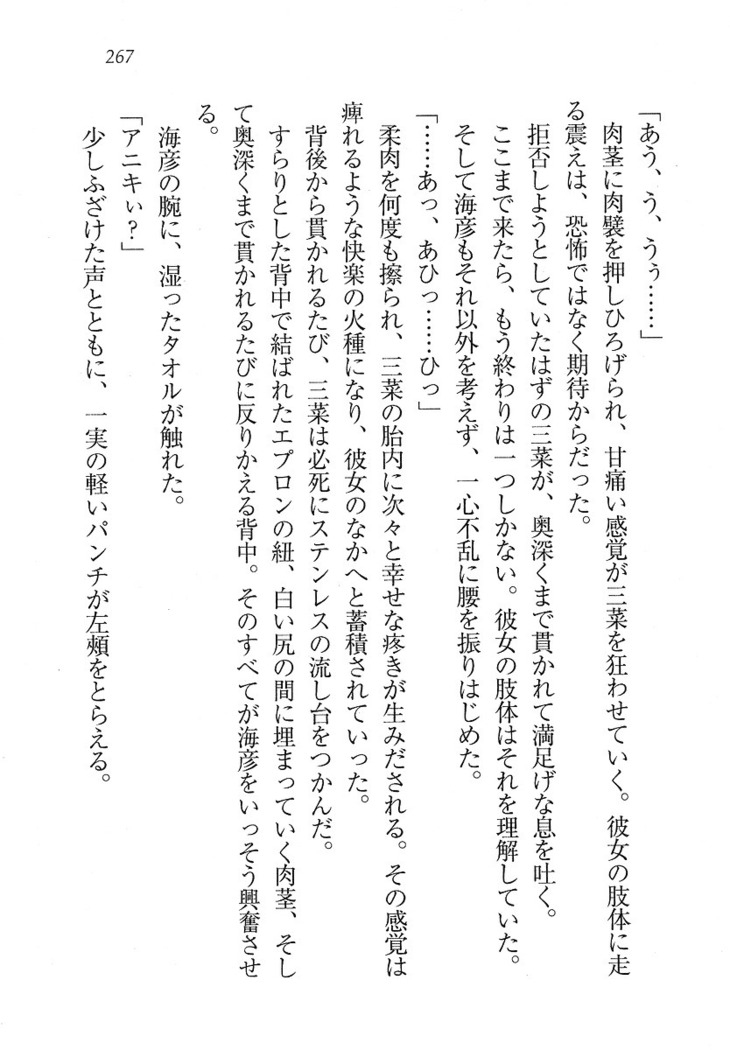 267
「あう、う、うぅ……」
肉茎に肉襞を押しひろげられ、甘痛い感覚が三菜を狂わせていく。彼女の肢体に走
る震えは、恐怖ではなく期待からだった。
拒否しようとしていたはずの三菜が、奥深くまで貫かれて満足げな息を吐く。
ここまで来たら、もう終わりは一つしかない。彼女の肢体はそれを理解していた。
そして海彦もそれ以外を考えず、一心不乱に腰を振りはじめた。
「……あっ、あひっ……ひっ」
柔肉を何度も擦られ、三菜の胎内に次々と幸せな疼きが生みだされる。その感覚は
痺れるような快楽の火種になり、彼女のなかへと蓄積されていった。
背後から貫かれるたび、三菜は必死にステンレスの流し台をつかんだ。
すらりとした背中で結ばれたエプロンの紐、白い尻の間に埋まっていく肉茎、そし
て奥深くまで貫かれるたびに反りかえる背中。そのすべてが海彦をいっそう興奮させ
る。
海彦の腕に、湿ったタオルが触れた。
「アニキぃ?」
少しふざけた声とともに、一実の軽いパンチが左頰をとらえる。